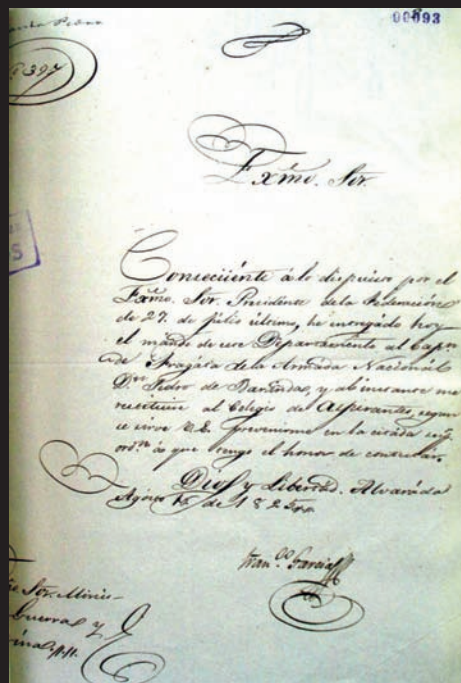 00093
Exmo. Sor.
Consecüente á lo dispuesto por el
Exmo. Sor. Presidente de la Federación
de 27. de Julio último, he entregado hoy
el mando de este Departamento al Capn
de Fragata de la Armada Nacional
Dn. Pedro de Barandas, y al instante me
restituí al Colegio de Aspirantes, segun
se sirve V.E. prevenirme en la citada
ordn. á que tengo el honor de contestar.
Dios y Libertad. Alvarado
Agosto de 1825.
Franco. Garcia
Sor. Minis-
Guerra y
rina